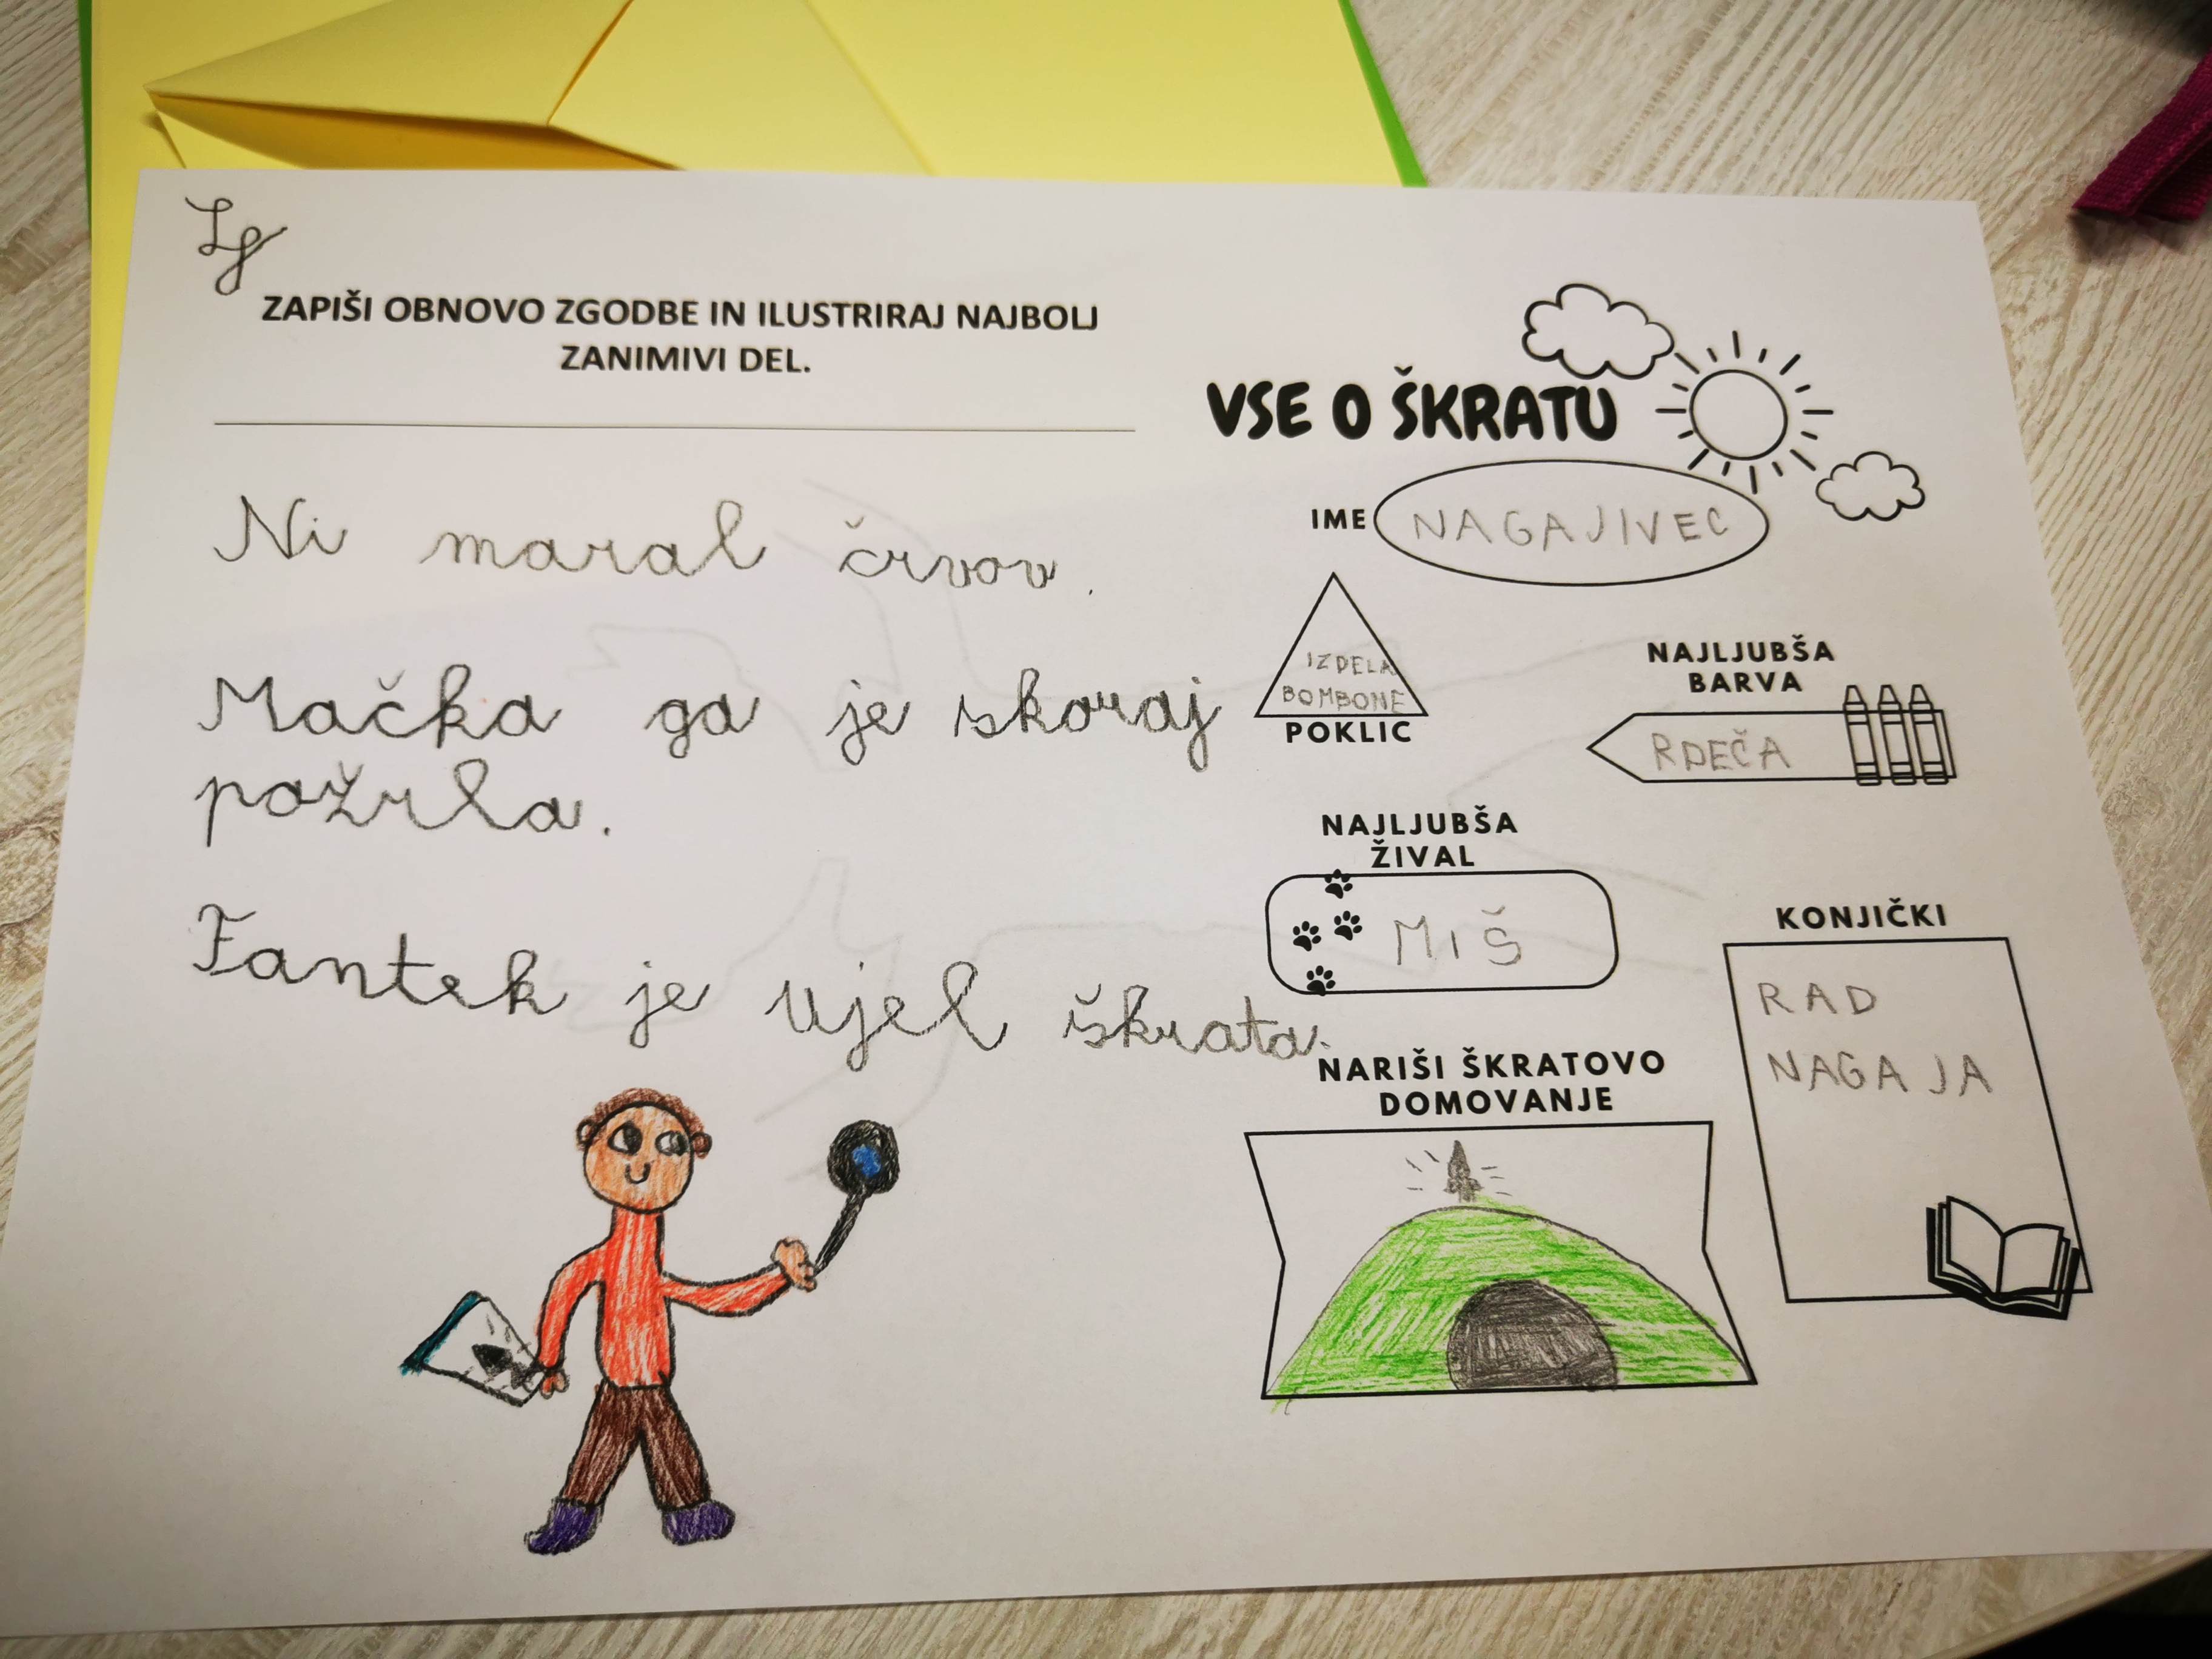 ZAPIŠI OBNOVO ZGODBE IN ILUSTRIRAJ NAJBOLJ
ZANIMIVI DEL.
Ni maral črvov.
Mačka ga je skoraj
požrla.
Fantek je ujel škrata.
VSE O ŠKRATU
IME
NAGAJIVEC
IZDELA
BOMBONE
POKLIC
NAJLJUBŠA
BARVA
RDEČA
NAJLJUBŠA
ŽIVAL
MIŠ
KONJIČKI
RAD
NAGAJA
NARIŠI ŠKRATOVO
DOMOVANJE